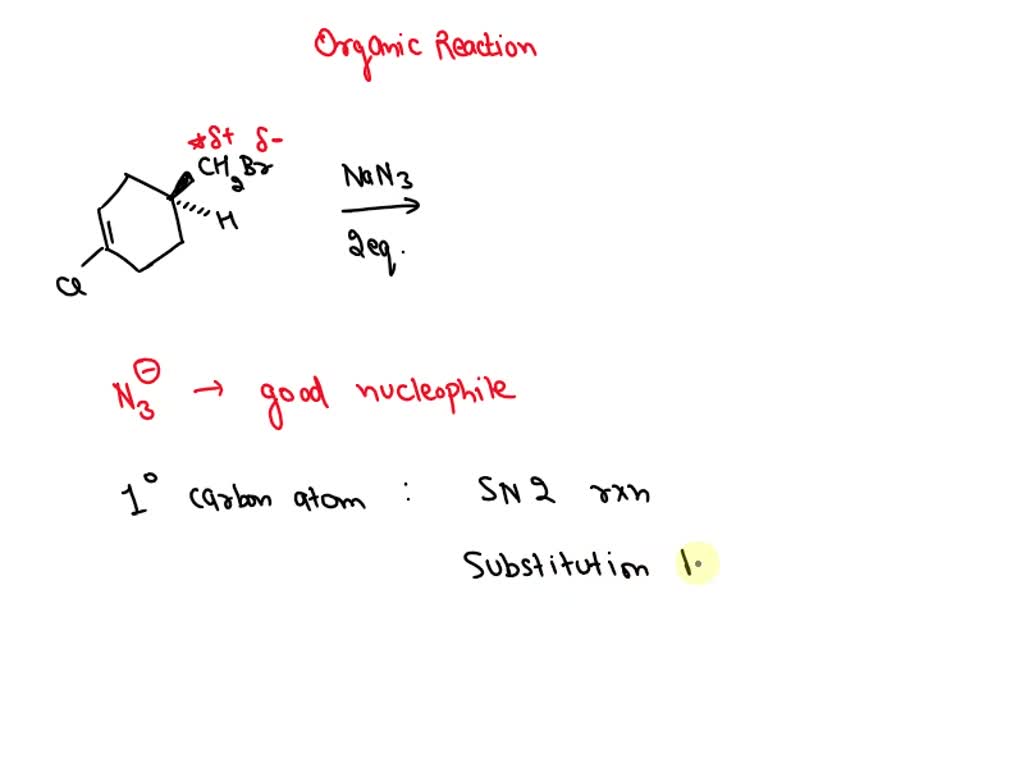 Organic Reaction
*δ+ δ-
CH2Br
NaN3
H
2eq.
Cl
N3⊖ → good nucleophile
1° carbon atom : SN2 rxn
Substitution